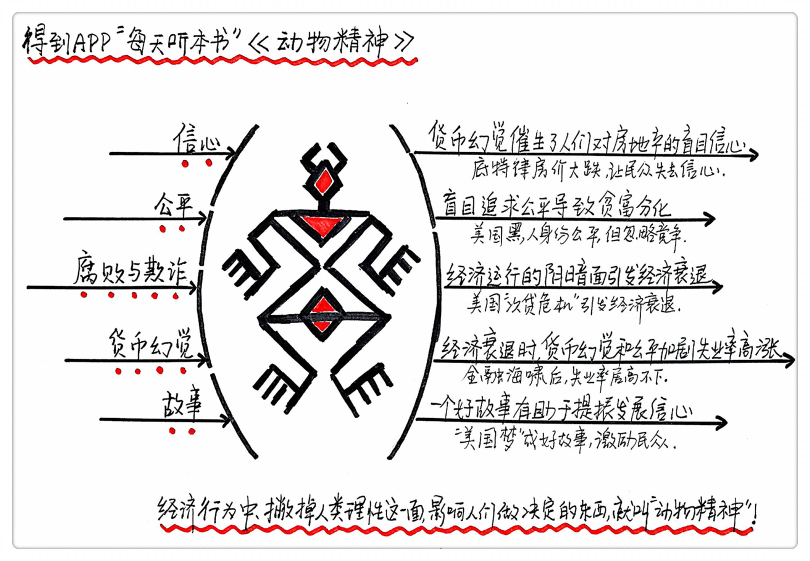 得到APP“每天听本书”《动物精神》
信心
货币幻觉催生了人们对房地产的盲目信心
底特律房价大跌,让民众失去信心.
公平
盲目追求公平导致贫富分化
美国黑人身份公平,但忽略竞争.
腐败与欺诈
经济运行的阴暗面引发经济衰退
美国“次贷危机”引发经济衰退.
货币幻觉
经济衰退时,货币幻觉和公平加剧失业率高涨
金融海啸后,失业率居高不下.
故事
一个好故事有助于提振发展信心
“美国梦”成好故事,激励民众.
经济行为中、撇掉人类理性这一面,影响人们做决定的东西,就叫“动物精神”!